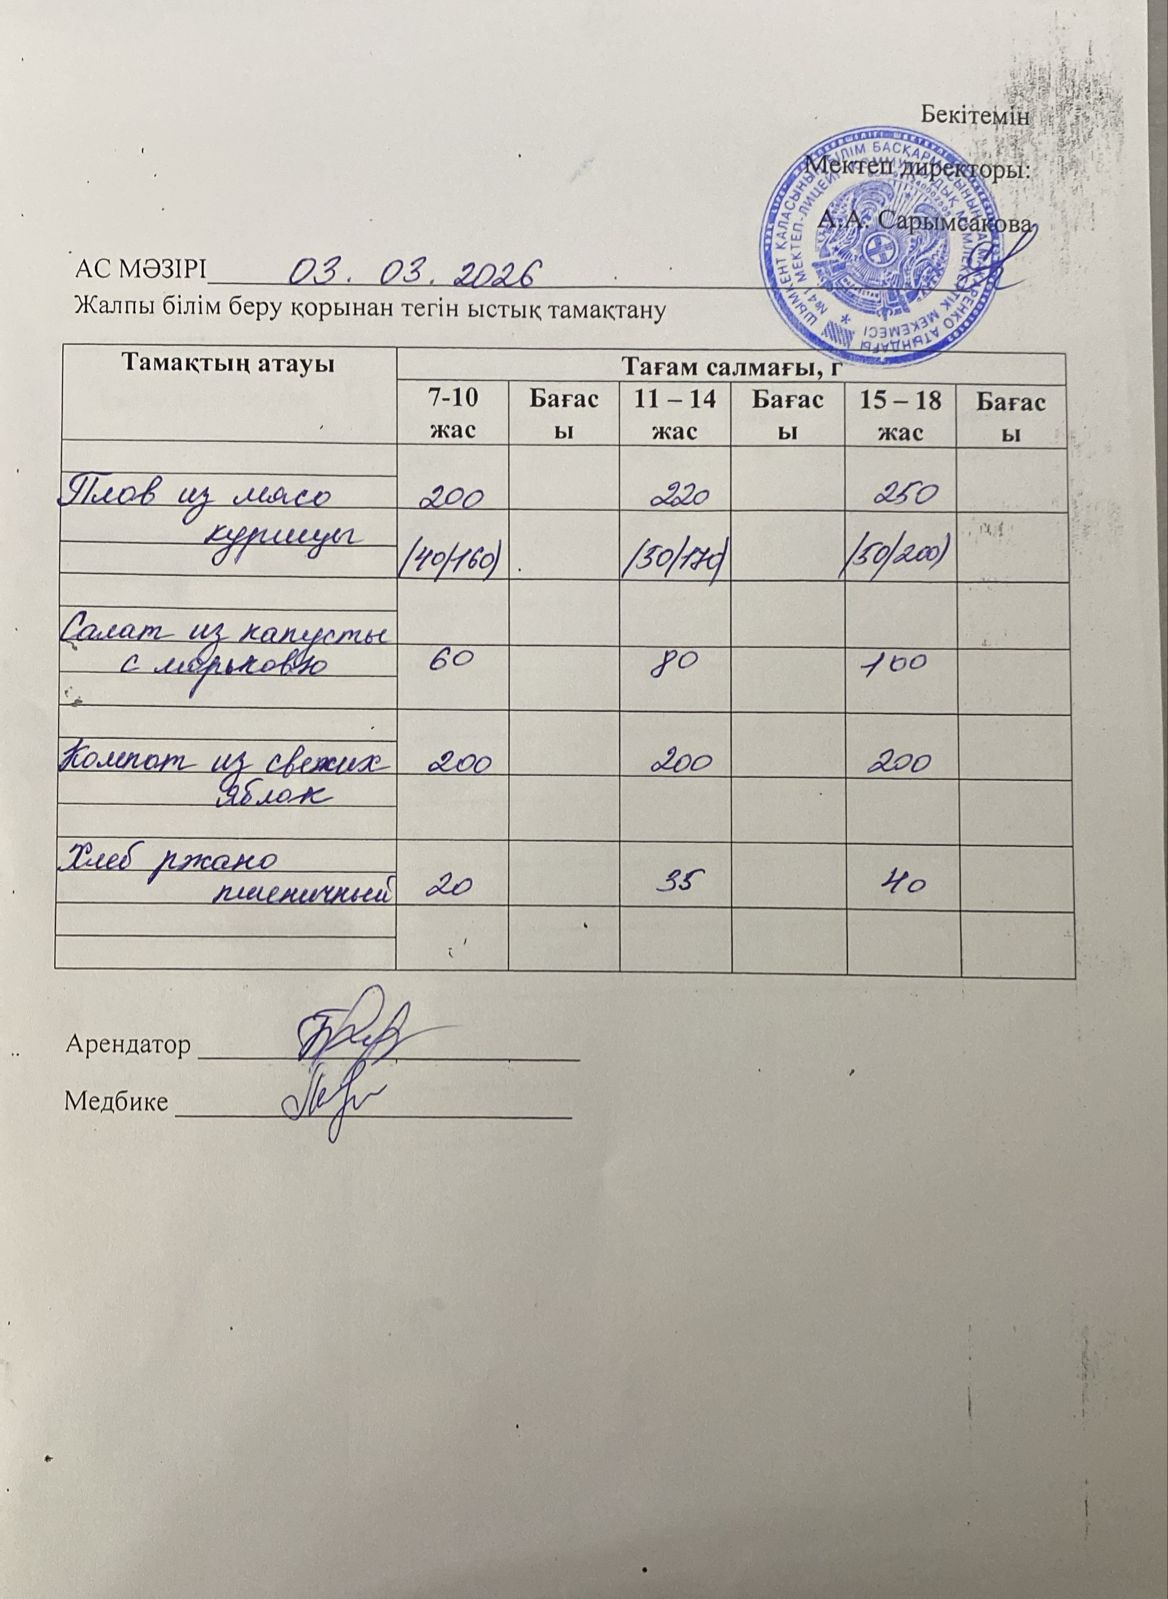 Бекітемін
Мектеп директоры:
А.А. Сарымсакова
АС МӘЗІРІ 03. 03. 2026
Жалпы білім беру қорынан тегін ыстық тамақтану
Тамақтың атауы Тағам салмағы, г
7-10 жас Бағасы 11 – 14 жас Бағасы 15 – 18 жас Бағасы
Плов из мясо 200 220 250
курицы (40/160) (50/170) (50/200)
Салат из капусты
с морьковью 60 80 100
Компот из свежих 200 200 200
яблок
Хлеб ржано
пшеничный 20 35 40
Арендатор
Медбике